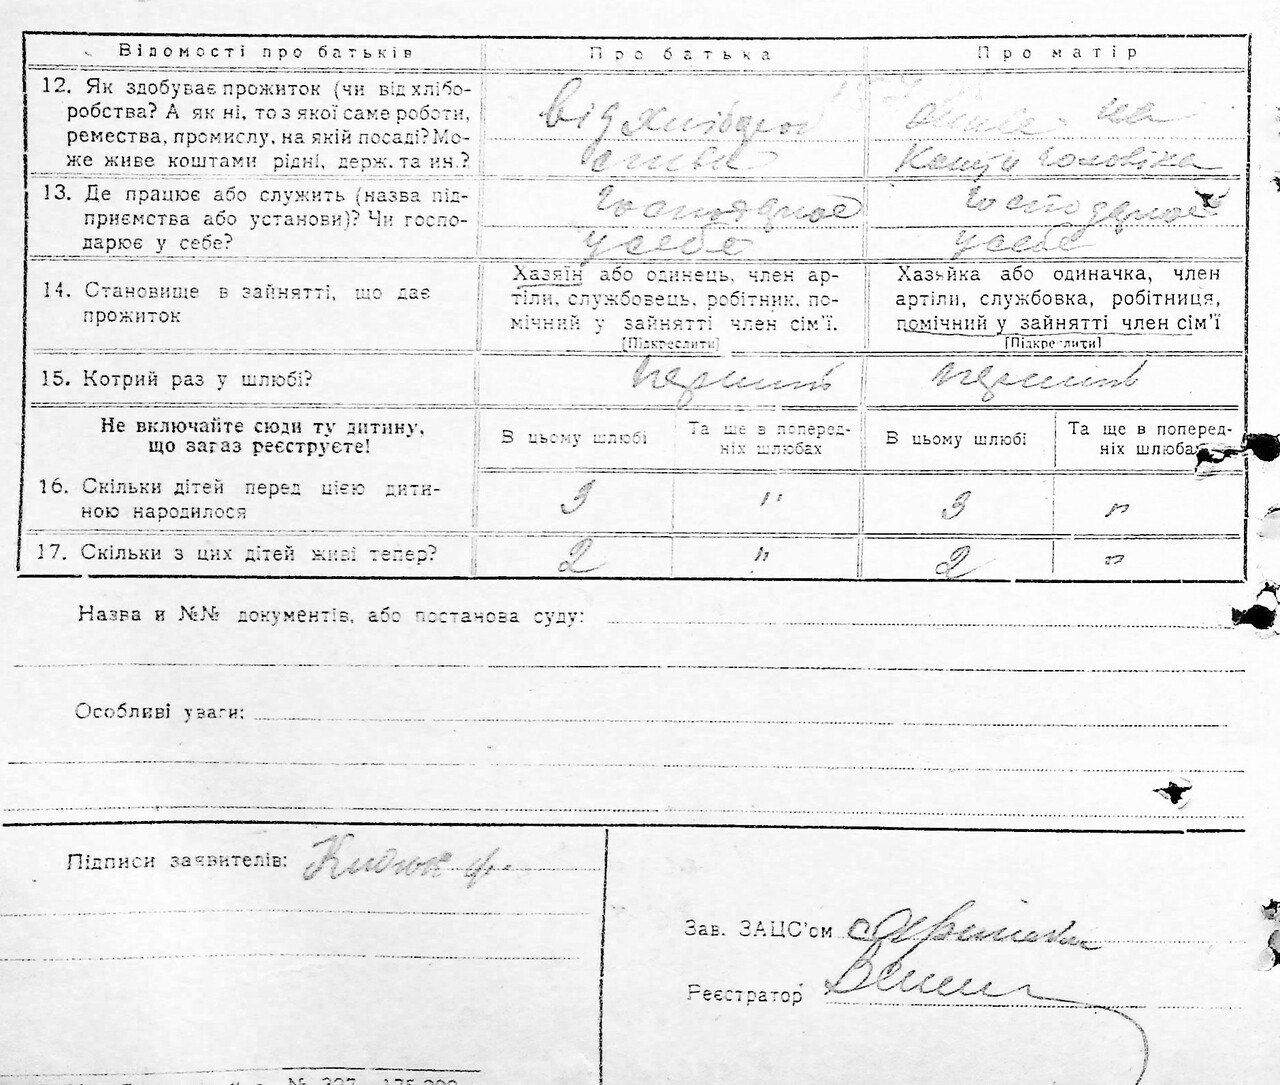 Відомості про батьків Про батька Про матір
12. Як здобуває прожиток (чи від хлібо-
робства? А як ні, то з якої саме роботи,
ремества, промислу, на якій посаді? Мо-
же живе коштами рідні, держ. та ин.?
від хлібороб
ства
живе на
кошти чоловіка
13. Де працює або служить (назва під-
приємства або установи)? Чи госпо-
дарює у себе?
господарює
у себе
господарює
у себе
14. Становище в зайнятті, що дає
прожиток
Хазяїн або одинець, член ар-
тіли, службовець, робітник, по-
мічний у зайнятті член сім'ї.
[Підкреслити]
Хазяйка або одиначка, член
артіли, службовка, робітниця,
помічний у зайнятті член сім'ї
[Підкреслити]
15. Котрий раз у шлюбі? перший перший
Не включайте сюди ту дитину,
що зараз реєструєте!
В цьому шлюбі
Та ще в поперед-
ніх шлюбах
В цьому шлюбі
Та ще в поперед-
ніх шлюбах
16. Скільки дітей перед цією дити-
ною народилося
3 " 3 "
17. Скільки з цих дітей живі тепер? 2 " 2 "
Назва и №№ документів, або постанова суду:
Особливі уваги:
Підписи заявителів:
Зав. ЗАЦС'ом
Реєстратор
№ 327 175.000